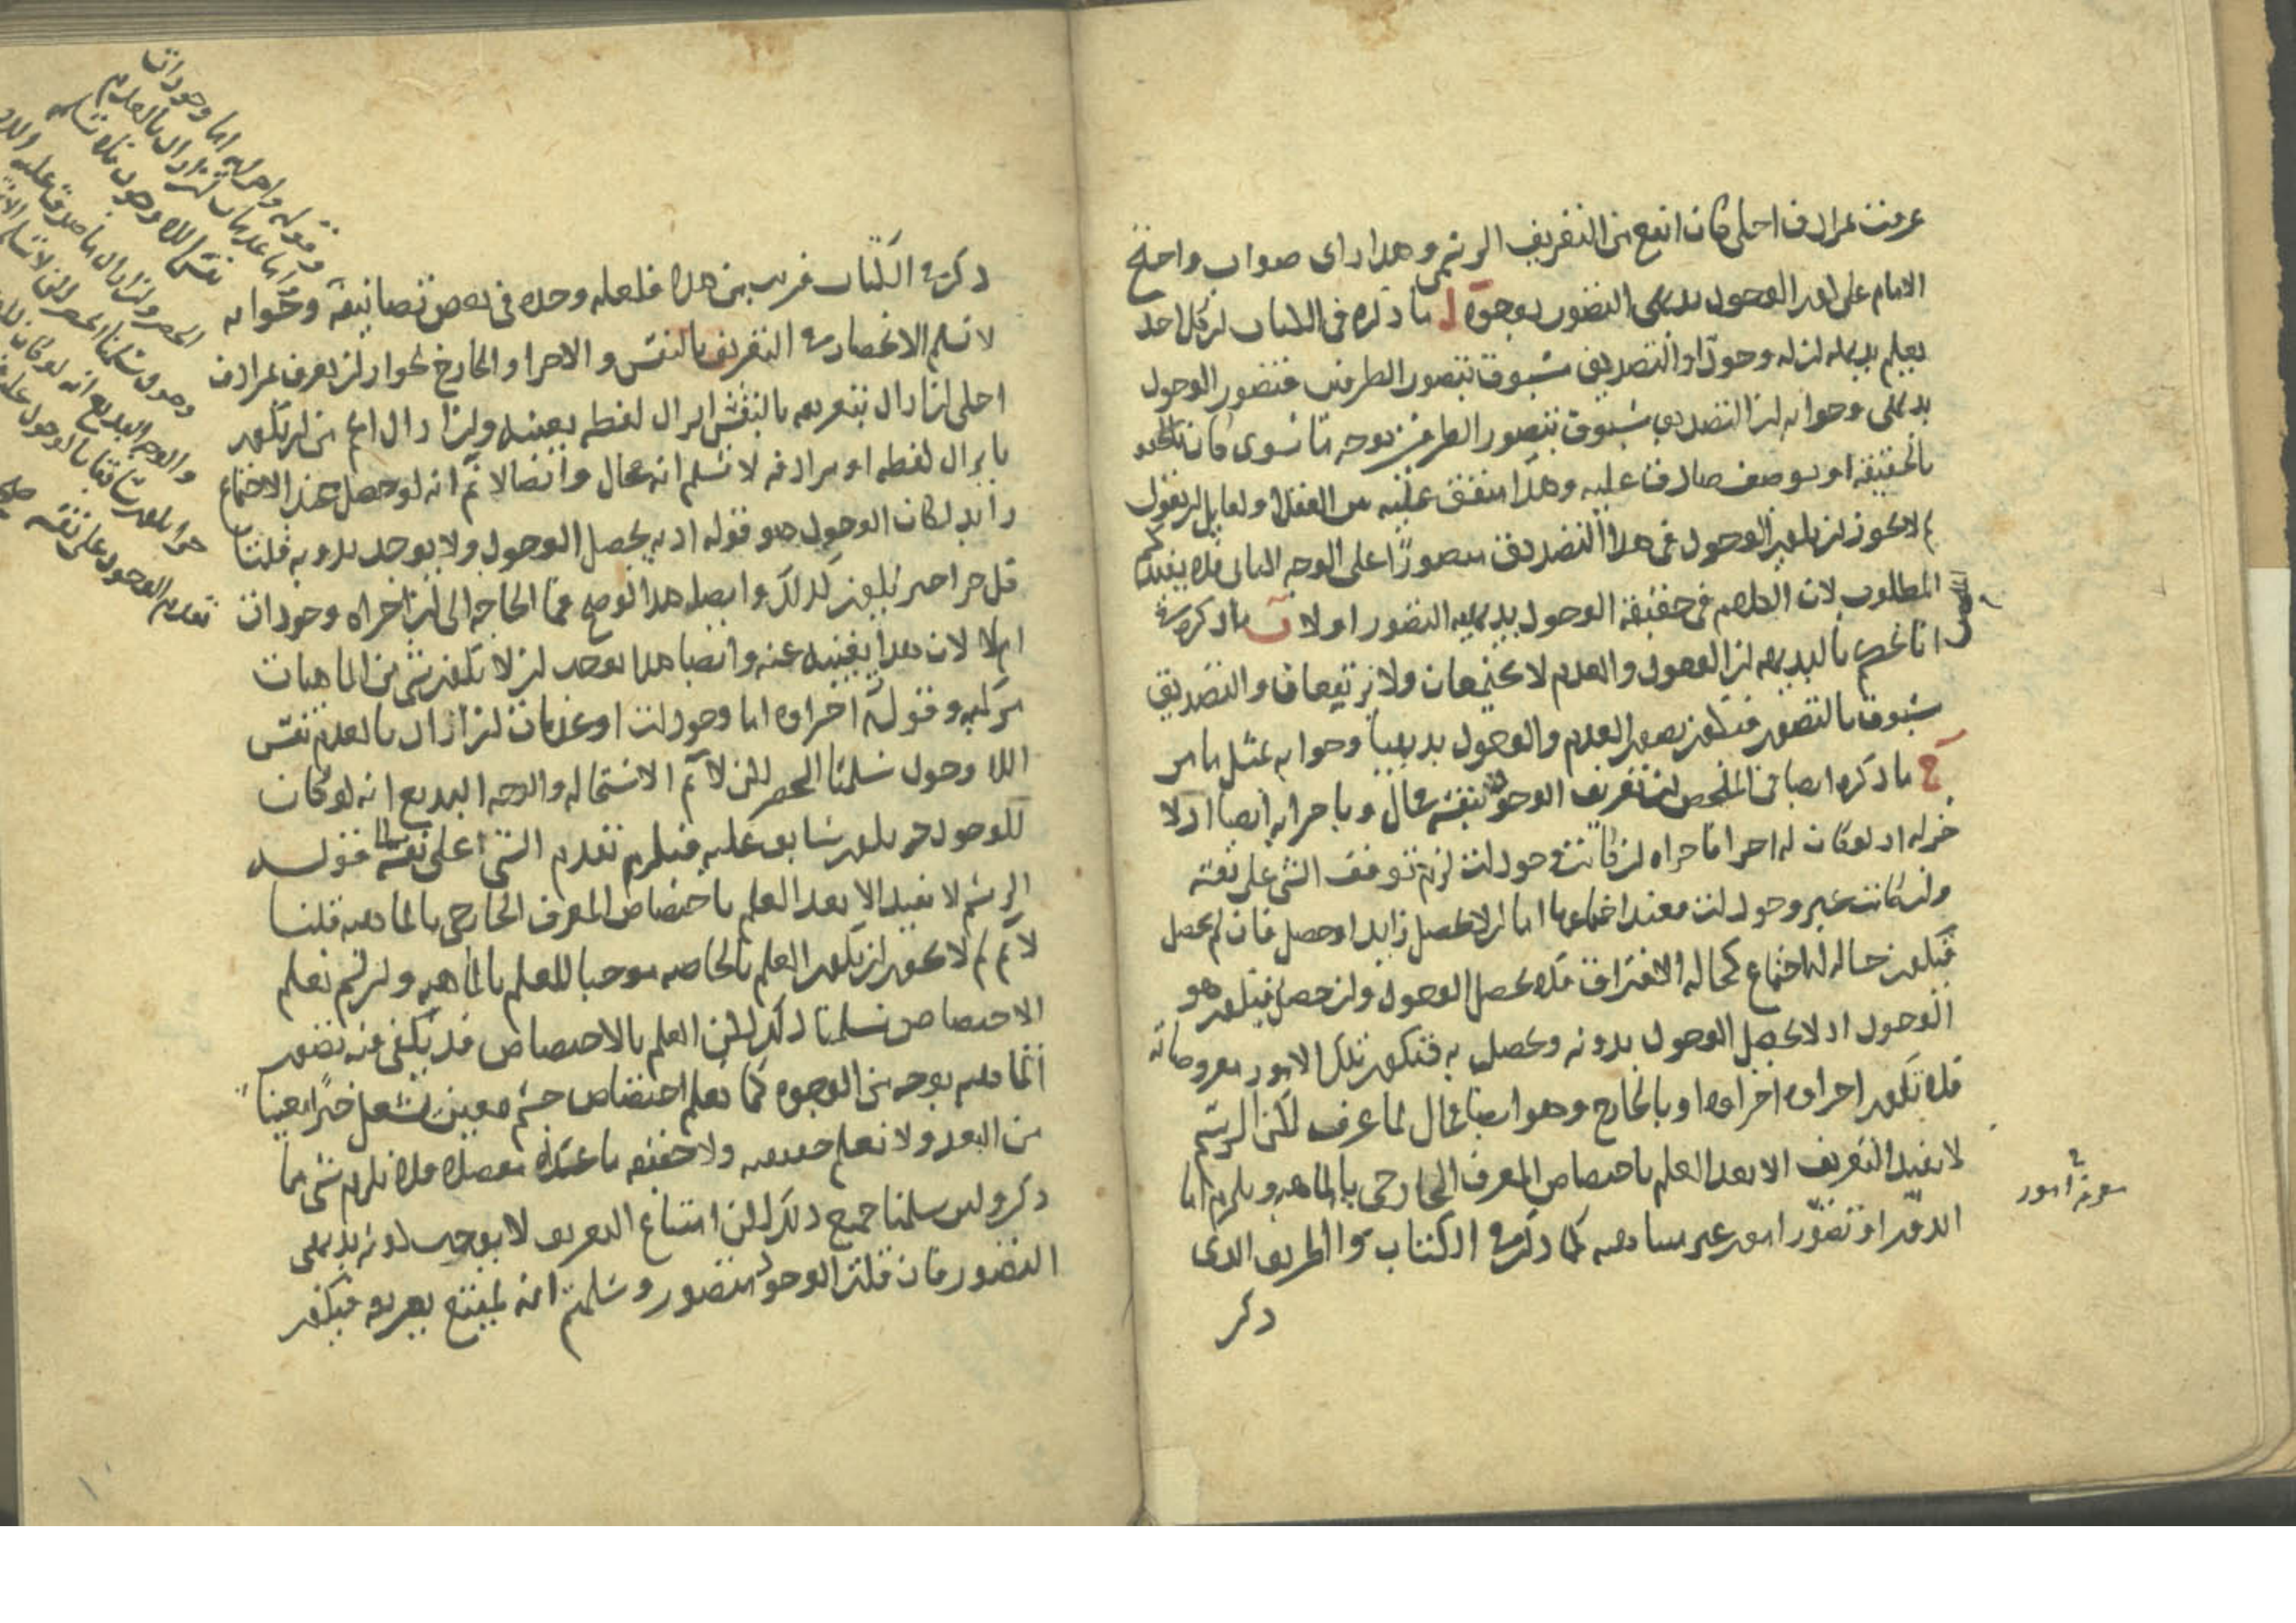 عرفت بمرادف اجلى كان انفع من التعريف الرسمي وهذا راى صواب واحتج
الامام على ان الوجود بديهى التصور بوجوه ا ما ذكره فى الكتاب ان كل احد
يعلم بديهة ان له وجودا والتصديق مسبوق بتصور الطرفين فتصور الوجود
بديهى وجوابه ان التصديق مسبوق بتصور الطرفين بوجه ما سوى كان
بالحقيقة او بوصف صادق عليه وهذا متفق عليه من العقلا ولقايل ان يقول
لم لا يجوز ان يكون الوجود فى هذا التصديق متصورا على الوجه الثانى فلا يفيد
المطلوب لان الكلام فى حقيقة الوجود بديهية التصور او لا ب ما ذكره
انا نحكم بالبديهه ان الوجود والعدم لا يجتمعان ولا يرتفعان والتصديق
مسبوق بالتصور فيكون تصور العدم والوجود بديهيا وجوابه بمثل ما مر
ج ما ذكره ايضا فى الملخص ان تعريف الوجود بنفسه محال وباجزايه ايضا اذ لا
جزء له اذ لو كان له اجزا فاجزاه ان كانت وجودات لزم توقف الشى على نفسه
وان كانت غير وجودات فعند اجتماعها اما ان لا يحصل زايد او حصل فان لم يحصل
فيكون حاله الاجتماع كحاله الافتراق فلا يحصل الوجود وان حصل فيكون هو
الوجود اذ لا يحصل الوجود بدونه ويحصل به فتكون تلك الامور معروضاته
فلا تكون اجزاوه اجزاوها وبالخارج وهو ايضا محال لما عرف لكن الرسم
لا يفيد التعريف الا بعد العلم باختصاص المعرف الخارجى بالماهيه ويلزم اما
الدور او تصور امور غير متناهيه كما ذكره فى الكتاب والطريق الذى
ذكر
معرفة امور
ذكره فى الكتاب قريب من هذا فلعله وجده فى بعض تصانيفه وجوابه
لا نسلم الانحصار فى التعريف بالنفس والاجزا والخارج لجواز ان يعرف بمرادف
اجلى ان اراد بتعريفه بالنفس ايراد لفظه بعينه وان اراد اعم من ان يكون
بايراد لفظه او مرادفه لا نسلم انه محال وايضا لا نم انه لو حصل عند الاجتماع
زايد لكان الوجود هو قوله اذ به يحصل الوجود ولا يوجد بدونه قلنا
كل جزا خير يكون كذلك وايضا هذا لو صح فما الحاجه الى ان اجزاه وجودات
ام لا لان هذا يغنيه عنه وايضا هذا يوجب ان لا تكون شى من الماهيات
مركبه وقوله اجزاوه اما وجودات او عدمات ان اراد بالعدم نفس
اللا وجود سلمنا الحصر لكن لا نم الاستحاله والوجه البديع انه لو كان
للوجود جزء يكون سابق عليه فيلزم تقدم الشى على نفسه قوله
الرسم لا يفيد الا بعد العلم باختصاص المعرف الخارجى بالماهيه قلنا
لا نم لم لا يجوز ان يكون العلم بالخاصه موجبا للعلم بالماهيه وان لم نعلم
الاختصاص سلمنا ذلك لكن العلم بالاختصاص قد يكفى فيه تصور
الماهيه بوجه من الوجوه كما نعلم اختصاص جسم معين بشغل حيز معينا
من البعد ولا نعلم حقيقته ولا حقيقة ما عداه مفصلا فلا يلزم شى مما
ذكر ولين سلمنا جميع ذلك لكن امتناع التعريف لا يوجب كونه بديهى
التصور فان قلت الوجود متصور وسلمت انه يمتنع تعريفه فيكون
وقوله واجزايه اما وجودات
واما عدمات ان اراد بالعدم
نفس اللا وجود فلا نسلم
الحصر وان اراد ما صدق عليه
وجود سلمنا الحصر لكن لا نسلم
والوجه البديع انه لو كان
جزا يكون سابقا بالوجود عليه
تقدم الوجود على نفسه صح